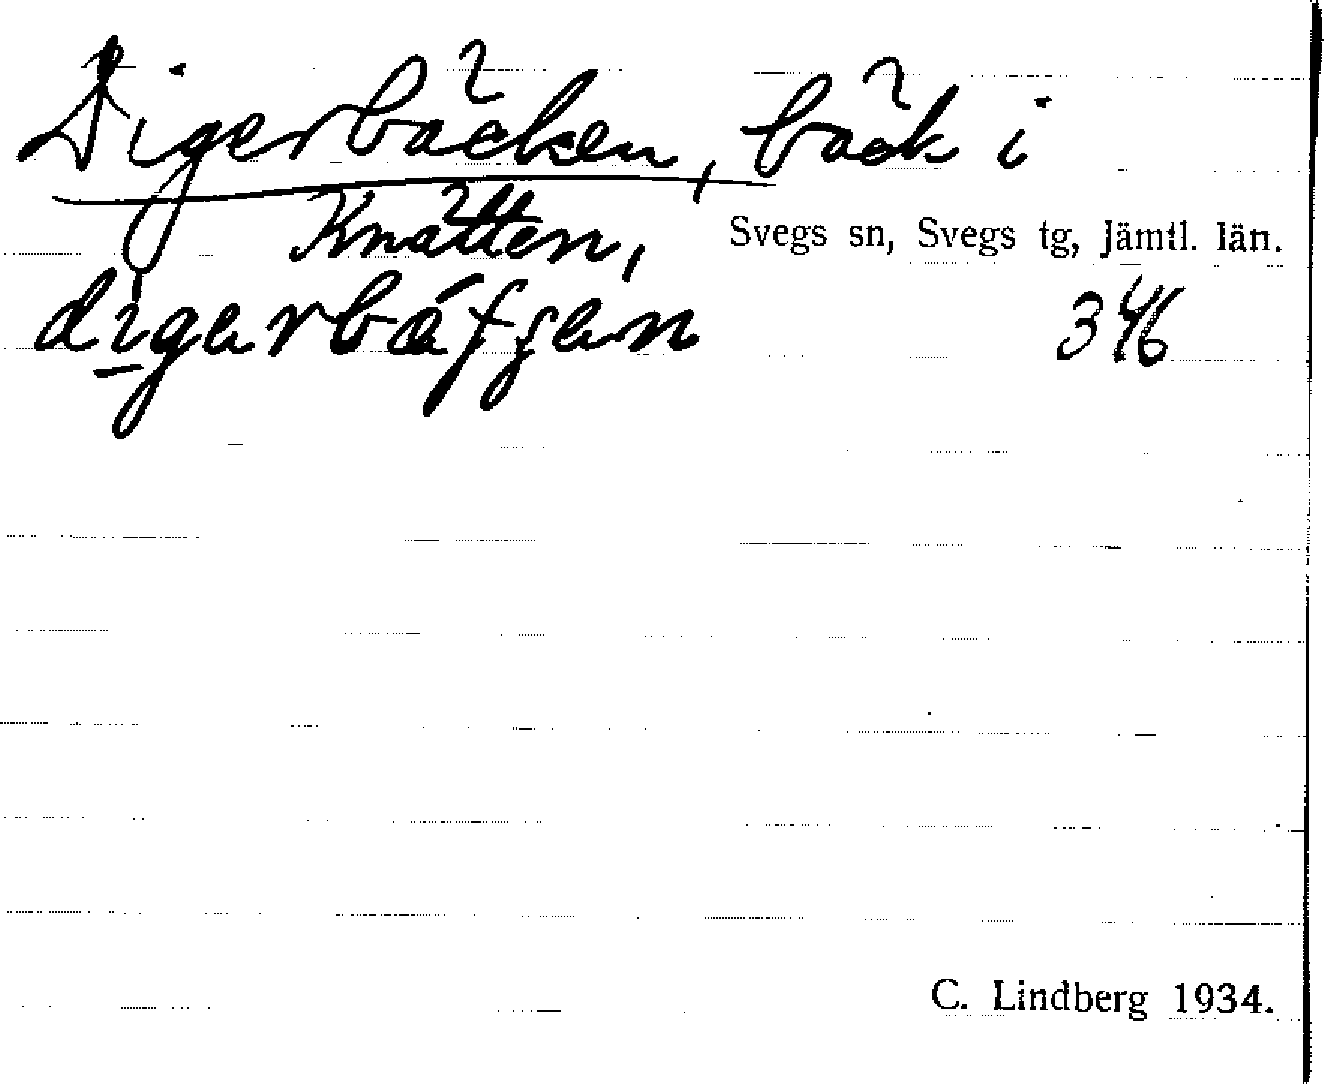 Digerbäcken, bäck i
Knätten, Svegs sn, Svegs tg, Jämtl. län.
digerbáfjen 346
C. Lindberg 1934.